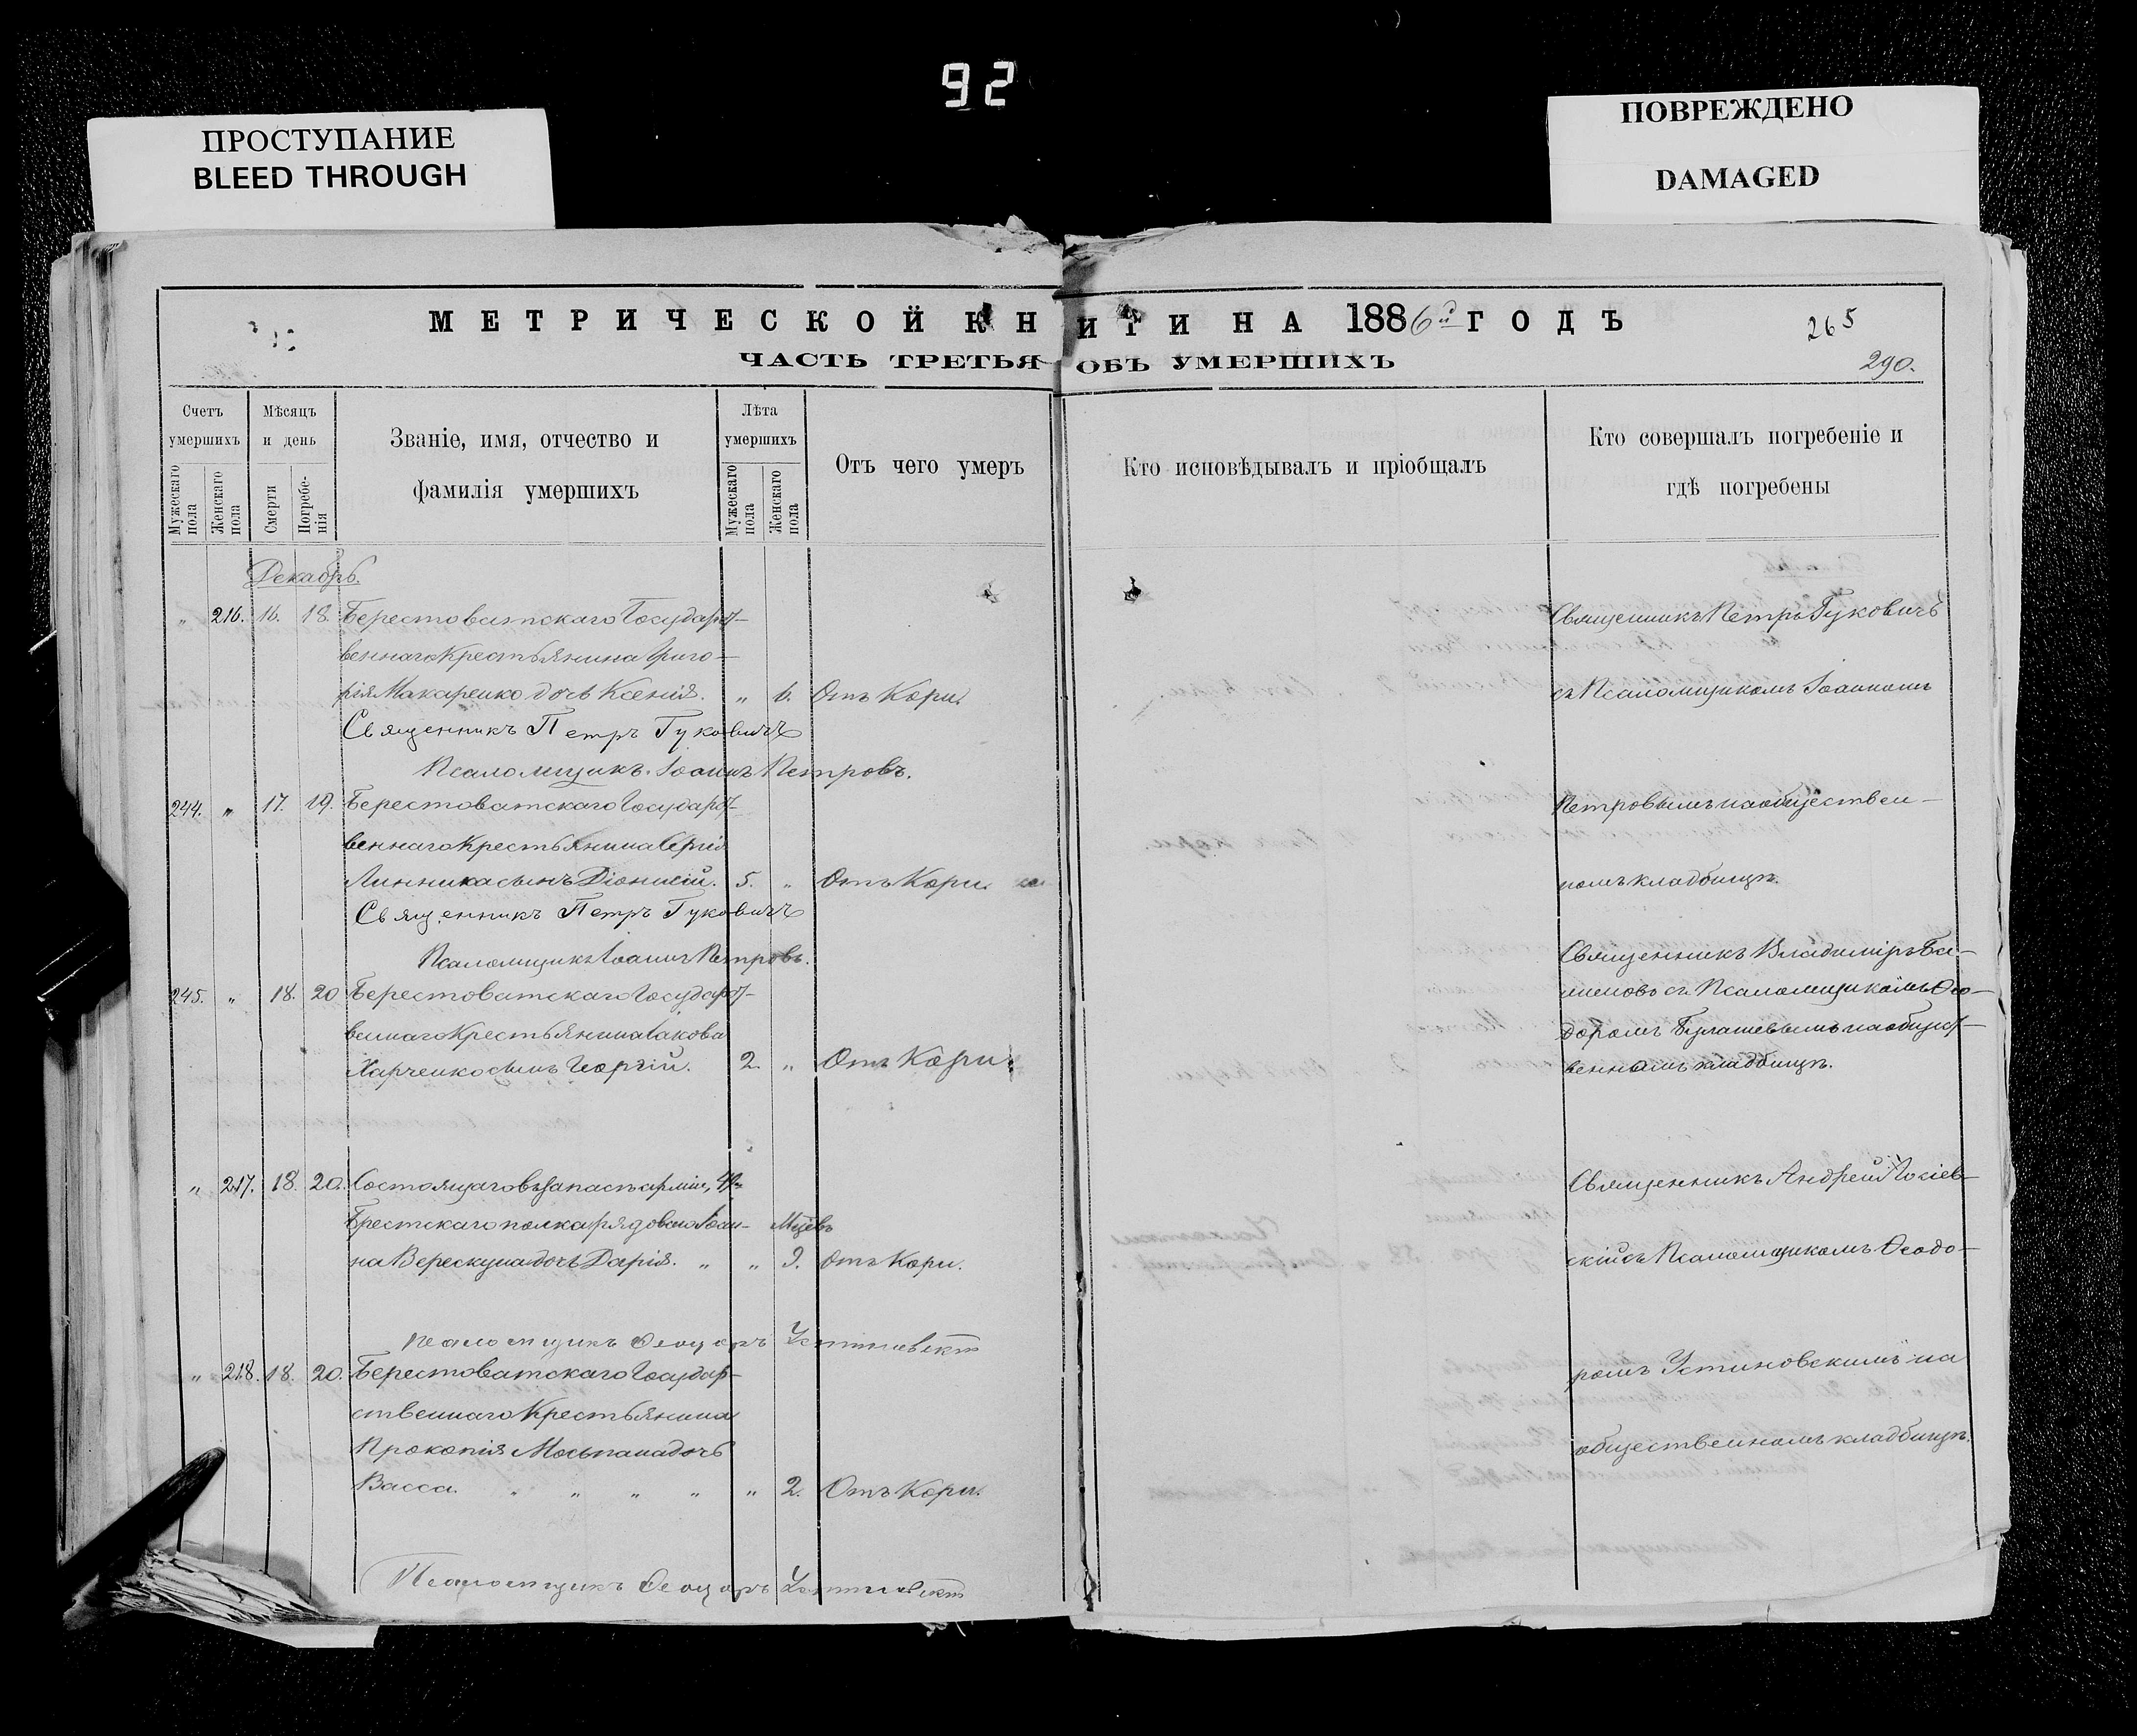 92
ПРОСТУПАНИЕ
BLEED THROUGH
ПОВРЕЖДЕНО
DAMAGED
МЕТРИЧЕСКОЙ КНИГИ НА 1886й ГОДЪ
265
ЧАСТЬ ТРЕТЬЯ ОБЪ УМЕРШИХЪ
290.
Счетъ умершихъ
Мужескаго пола
Женскаго пола
Мѣсяцъ и день
Смерти
Погребе-нія
Званіе, имя, отчество и
фамилія умершихъ
Лѣта умершихъ
Мужескаго пола
Женскаго пола
Отъ чего умеръ
Кто исповѣдывалъ и пріобщалъ
Кто совершалъ погребеніе и
гдѣ погребены
Декабрь.
" 216. 16. 18. Берестоватскаго Государст-
веннаго Крестьянина Григо-
рія Макаренко дочь Ксенія. " 6. Отъ Кори.
Священникъ Петръ Гуковичъ
Псаломщикъ Іоаннъ Петровъ.
244. " 17. 19. Берестоватскаго Государст-
веннаго Крестьянина Сергія
Линника сынъ Діонисій. 5. " Отъ Кори.
Священникъ Петръ Гуковичъ
Псаломщикъ Іоаннъ Петровъ.
245. " 18. 20 Берестоватскаго Государст-
веннаго Крестьянина Іакова
Харченко сынъ Георгій. 2. " Отъ Кори.
" 217. 18. 20. Состоящаго въ запасѣ арміи,
Брестскаго полка рядоваго Іоан- Мцевъ
на Верескуна дочь Дарія. " " 9. Отъ Кори.
Псаломщикъ Ѳеодоръ Устиновскій
" 218. 18. 20. Берестоватскаго Государ-
ственнаго Крестьянина
Прокопія Мосьпана дочь
Васса. " " " " " 2. Отъ Кори.
Псаломщикъ Ѳеодоръ Устиновскій
Священникъ Петръ Гуковичъ
съ Псаломщикомъ Іоанномъ
Петровымъ на обществен-
номъ кладбищѣ.
Священникъ Владиміръ
съ Псаломщикомъ Ѳео-
доромъ на общест-
венномъ кладбищѣ.
Священникъ Андрей
скій съ Псаломщикомъ Ѳеодо-
ромъ Устиновскимъ на
общественномъ кладбищѣ.